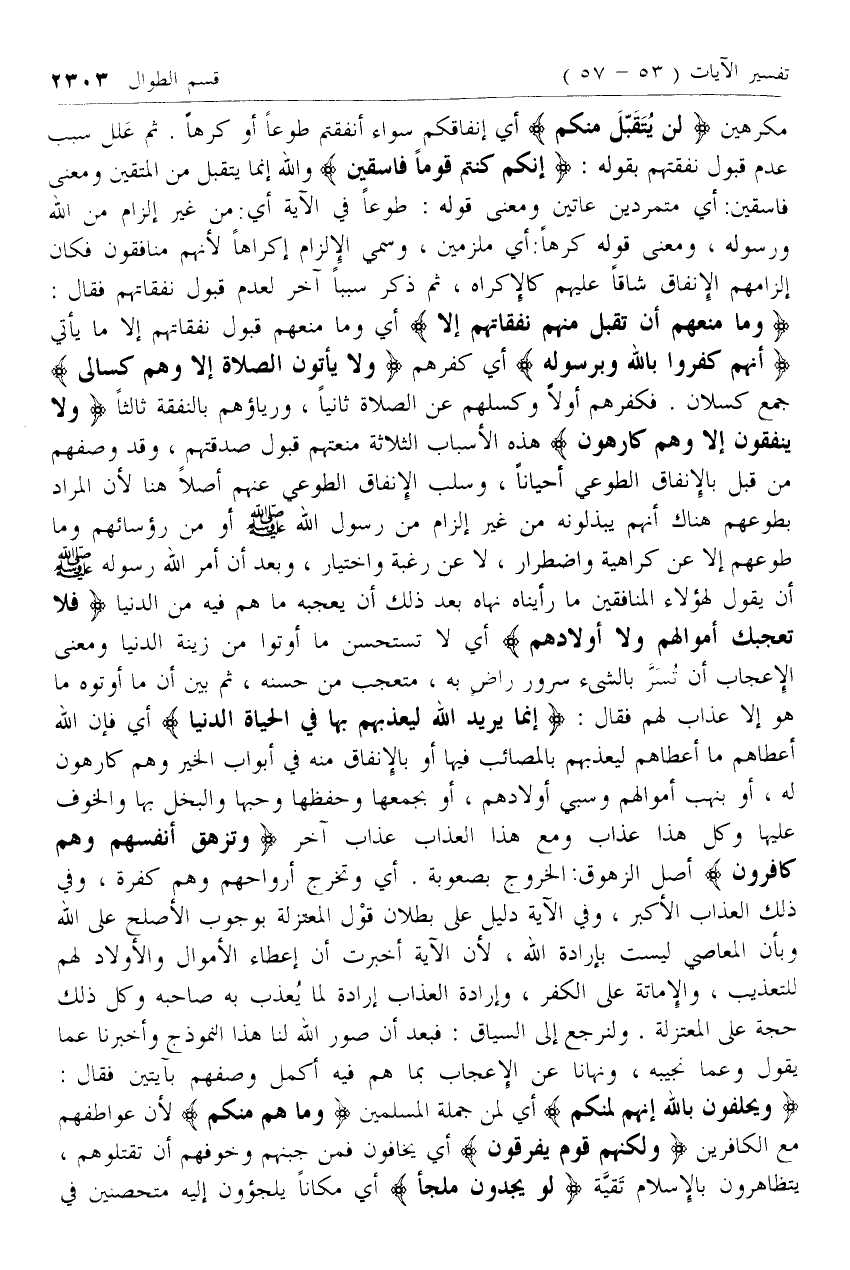 تفسير الآيات ( ٥٣ – ٥٧ ) قسم الطوال ٢٣٠٣
مكرهين ﴿ لن يُتَقَبّلَ منكم ﴾ أي إنفاقكم سواء أنفقتم طوعاً أو كرهاً . ثم عَلل سبب
عدم قبول نفقتهم بقوله : ﴿ إنكم كنتم قوماً فاسقين ﴾ والله إنما يتقبل من المتقين ومعنى
فاسقين: أي متمردين عاتين ومعنى قوله : طوعاً في الآية أي: من غير إلزام من الله
ورسوله ، ومعنى قوله كرهاً: أي ملزمين ، وسمي الإلزام إكراهاً لأنهم منافقون فكان
إلزامهم الإنفاق شاقاً عليهم كالإكراه ، ثم ذكر سبباً آخر لعدم قبول نفقاتهم فقال :
﴿ وما منعهم أن تقبل منهم نفقاتهم إلا ﴾ أي وما منعهم قبول نفقاتهم إلا ما يأتي
﴿ أنهم كفروا بالله وبرسوله ﴾ أي كفرهم ﴿ ولا يأتون الصلاة إلا وهم كسالى ﴾
جمع كسلان . فكفرهم أولاً وكسلهم عن الصلاة ثانياً ، ورياؤهم بالنفقة ثالثاً ﴿ ولا
ينفقون إلا وهم كارهون ﴾ هذه الأسباب الثلاثة منعتهم قبول صدقتهم ، وقد وصفهم
من قبل بالإنفاق الطوعي أحياناً ، وسلب الإنفاق الطوعي عنهم أصلاً هنا لأن المراد
بطوعهم هناك أنهم يبذلونه من غير إلزام من رسول الله ﷺ أو من رؤسائهم وما
طوعهم إلا عن كراهية واضطرار ، لا عن رغبة واختيار ، وبعد أن أمر الله رسوله ﷺ
أن يقول لهؤلاء المنافقين ما رأيناه نهاه بعد ذلك أن يعجبه ما هم فيه من الدنيا ﴿ فلا
تعجبك أموالهم ولا أولادهم ﴾ أي لا تستحسن ما أوتوا من زينة الدنيا ومعنى
الإعجاب أن تُسَرَّ بالشيء سرور راضٍ به ، متعجب من حسنه ، ثم بين أن ما أوتوه ما
هو إلا عذاب لهم فقال : ﴿ إنما يريد الله ليعذبهم بها في الحياة الدنيا ﴾ أي فإن الله
أعطاهم ما أعطاهم ليعذبهم بالمصائب فيها أو بالإنفاق منه في أبواب الخير وهم كارهون
له ، أو بنهب أموالهم وسبي أولادهم ، أو بجمعها وحفظها وحبها والبخل بها والخوف
عليها وكل هذا عذاب ومع هذا العذاب عذاب آخر ﴿ وتزهق أنفسهم وهم
كافرون ﴾ أصل الزهوق: الخروج بصعوبة . أي وتخرج أرواحهم وهم كفرة ، وفي
ذلك العذاب الأكبر ، وفي الآية دليل على بطلان قوْل المعتزلة بوجوب الأصلح على الله
وبأن المعاصي ليست بإرادة الله ، لأن الآية أخبرت أن إعطاء الأموال والأولاد لهم
للتعذيب ، والإماتة على الكفر ، وإرادة العذاب إرادة لما يُعذب به صاحبه وكل ذلك
حجة على المعتزلة . ولنرجع إلى السياق : فبعد أن صور الله لنا هذا النموذج وأخبرنا عما
يقول وعما نجيبه ، ونهانا عن الإعجاب بما هم فيه أكمل وصفهم بآيتين فقال :
﴿ ويحلفون بالله إنهم لمنكم ﴾ أي لمن جملة المسلمين ﴿ وما هم منكم ﴾ لأن عواطفهم
مع الكافرين ﴿ ولكنهم قوم يفرقون ﴾ أي يخافون فمن جبنهم وخوفهم أن تقتلوهم ،
يتظاهرون بالإسلام تَقيَّة ﴿ لو يجدون ملجأ ﴾ أي مكاناً يلجؤون إليه متحصنين في